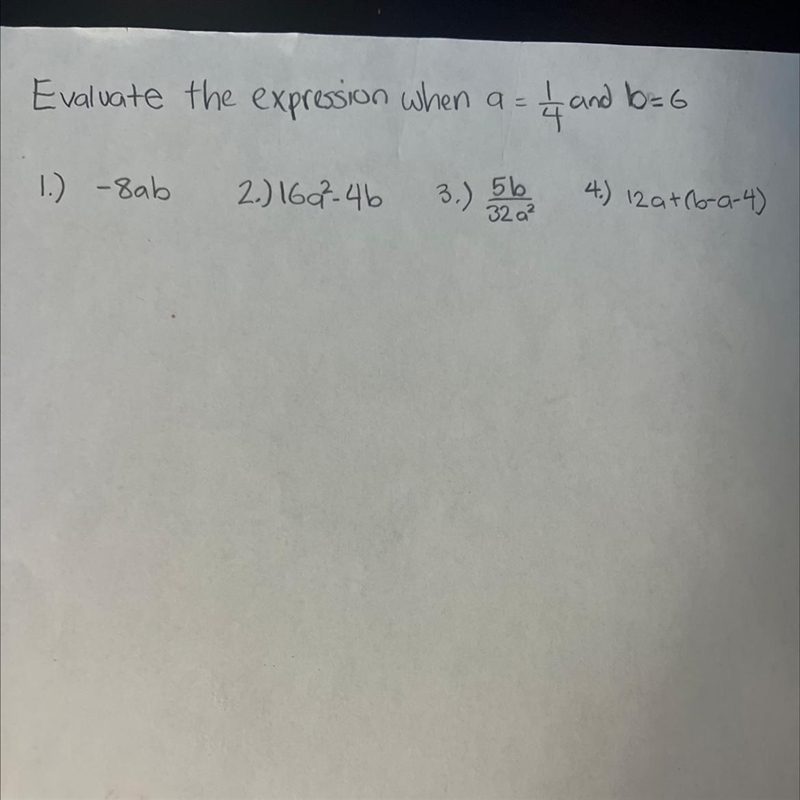 Evaluate the expression when a = 1/4 and b=6
1.) -8ab 2.) 16a²-4b 3.) 5b/32a² 4.) 12a+(b-a-4)